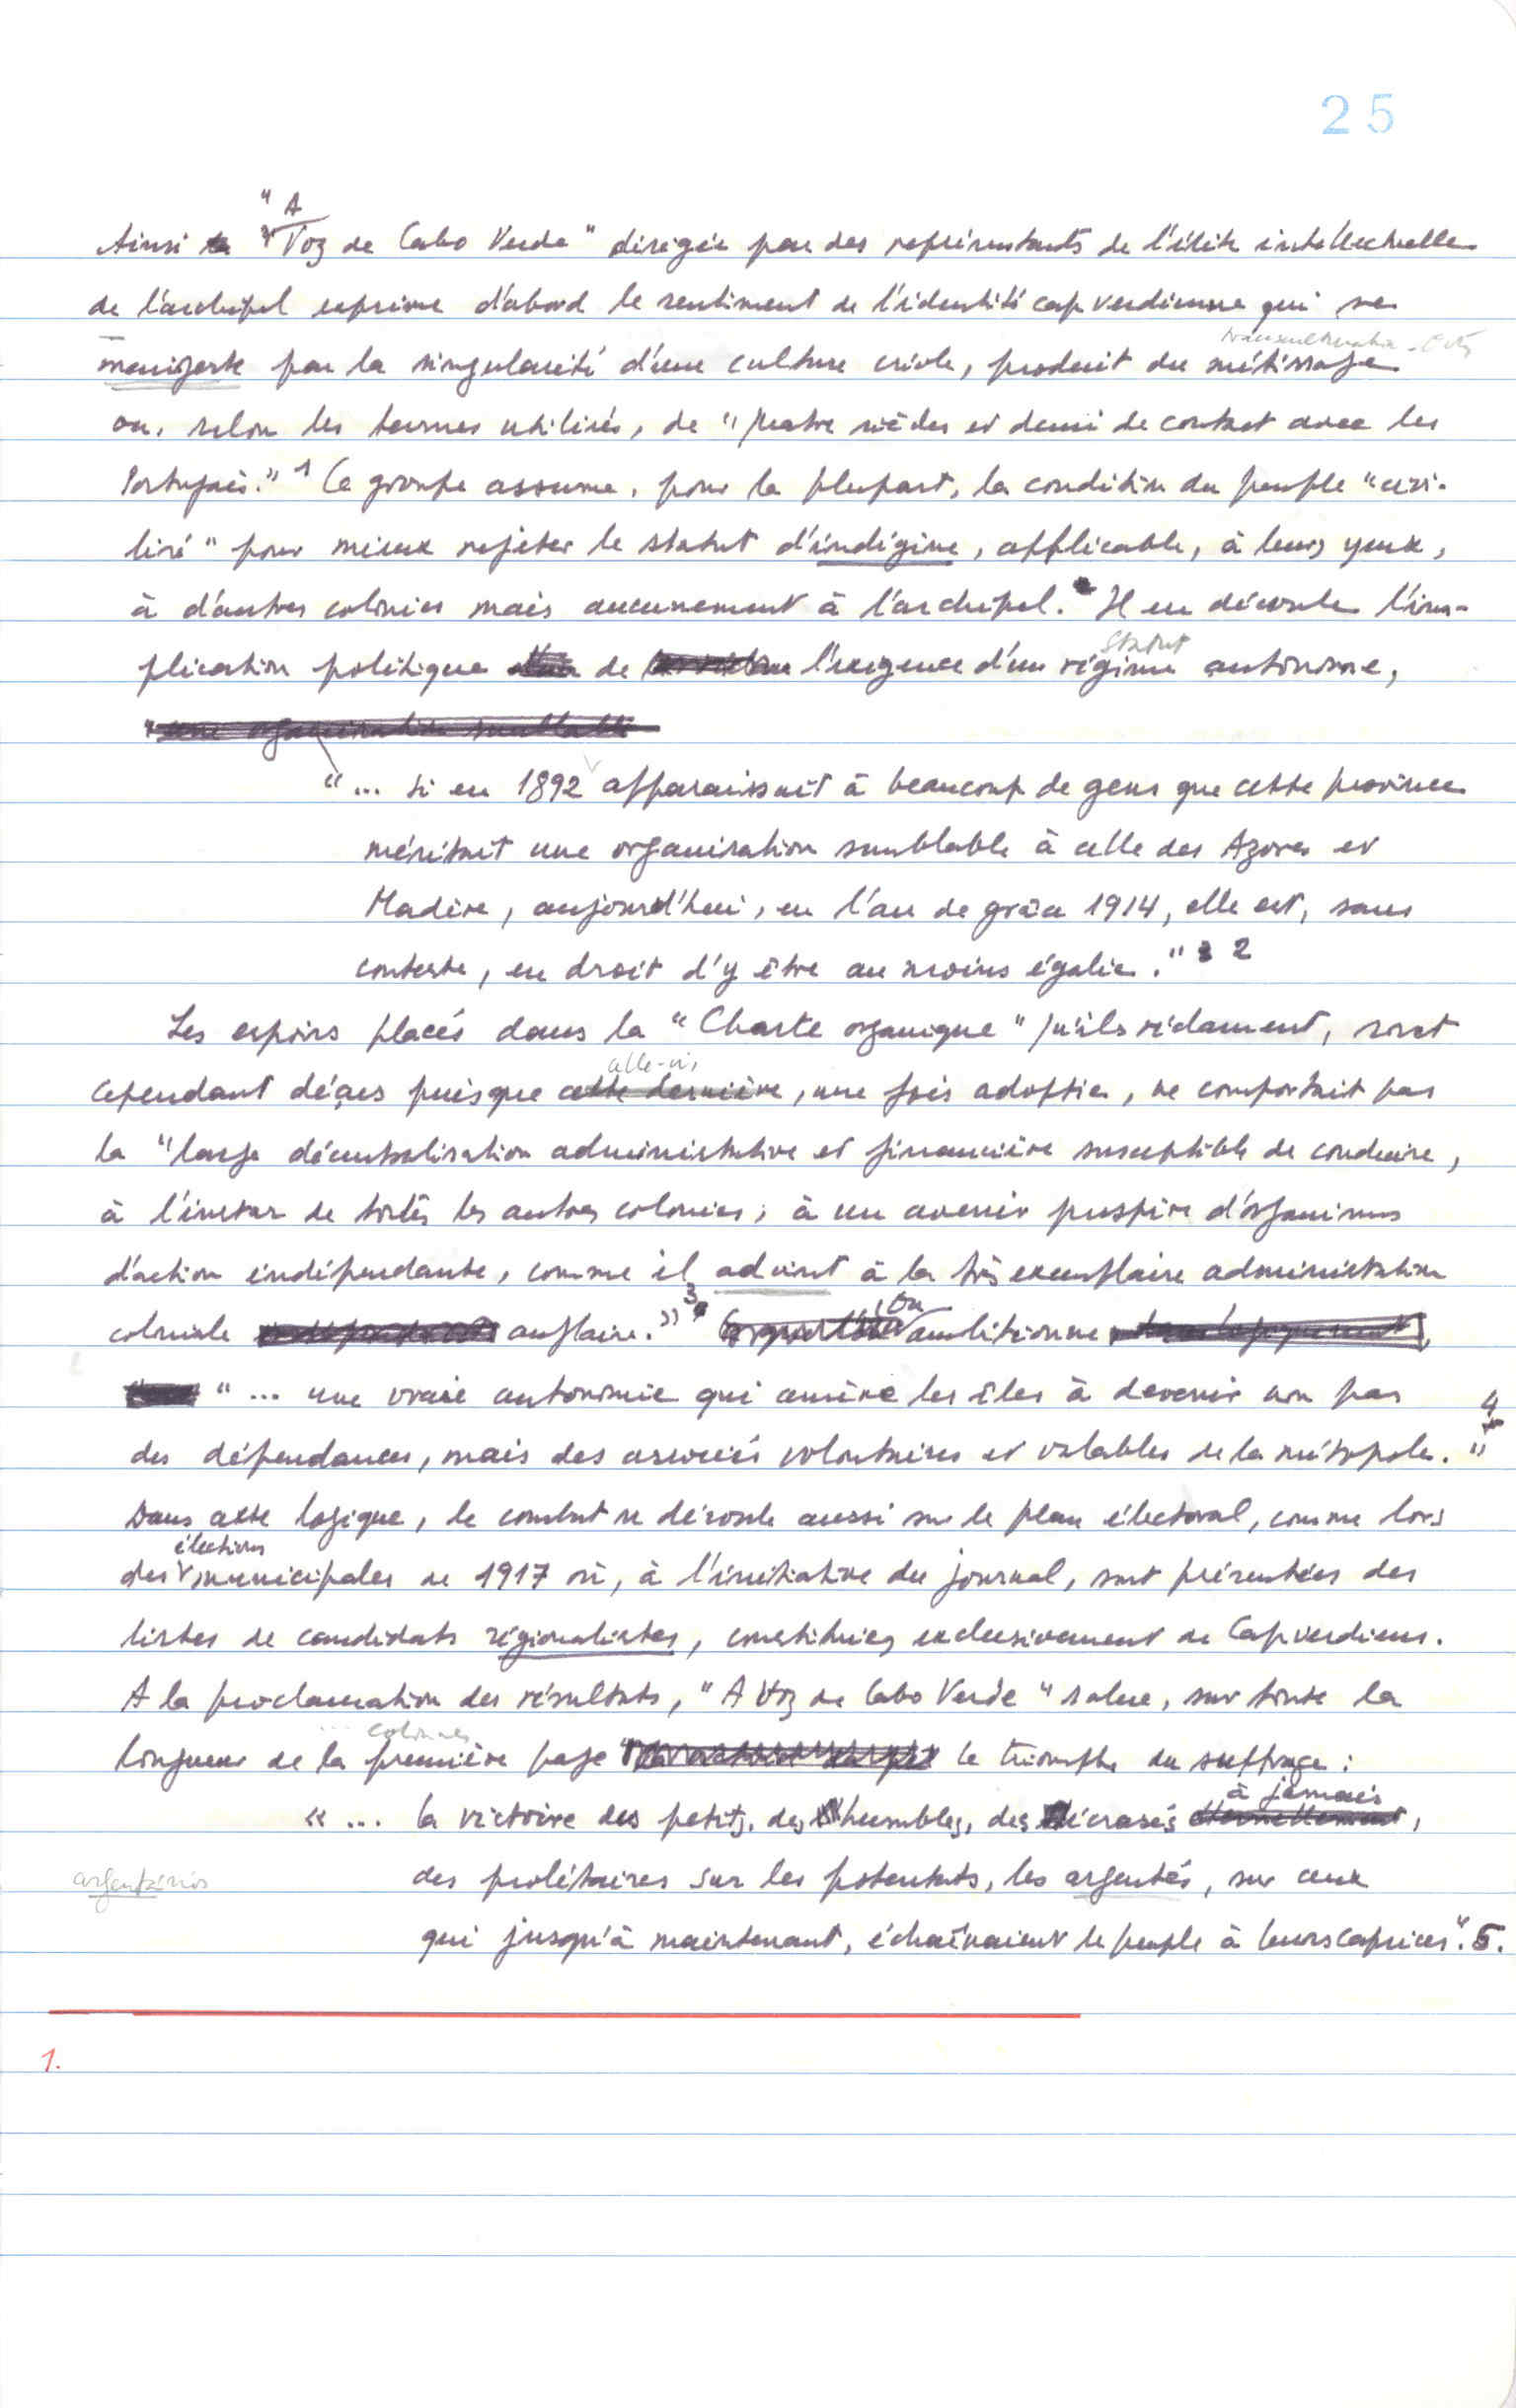 25
Ainsi "A Voz de Cabo Verde" dirigée par des représentants de l'élite intellectuelle
de l'archipel exprime d'abord le sentiment de l'identité capverdienne qui se
manifeste par la singularité d'une culture créole, produit du métissage
ou, selon les termes utilisés, de "quatre siècles et demi de contact avec les
Portugais." 1 Ce groupe assume, pour la plupart, la condition du peuple "civi-
lisé" pour mieux rejeter le statut d'indigène, applicable, à leurs yeux,
à d'autres colonies mais aucunement à l'archipel. Il en découle l'im-
statut
plication politique de l'exigence d'un régime autonome,
"... si en 1892 apparaissait à beaucoup de gens que cette province
méritait une organisation semblable à celle des Azores et
Madère, aujourd'hui, en l'an de grâce 1914, elle est, sans
conteste, en droit d'y être au moins égalée." 2
Les espoirs placés dans la "Charte organique" qu'ils réclament, sont
celle-ci
cependant déçus puisque cette dernière, une fois adoptée, ne comportait pas
la "large décentralisation administrative et financière susceptible de conduire,
à l'instar de toutes les autres colonies, à un avenir prospère d'organismes
d'action indépendante, comme il advint à la très exemplaire administration
coloniale anglaise." 3 On ambitionne
"... une vraie autonomie qui amène les îles à devenir non pas
des dépendances, mais des associés volontaires et valables de la métropole." 4
Dans cette logique, le combat se déroule aussi sur le plan électoral, comme lors
élections
des municipales de 1917 où, à l'initiative du journal, sont présentées des
listes de candidats régionalistes, constituées exclusivement de Capverdiens.
A la proclamation des résultats, "A Voz de Cabo Verde" salue, sur toute la
colonnes
longueur de la première page le triomphe du suffrage :
à jamais
"... la victoire des petits, des humbles, des écrasés éternellement,
des prolétaires sur les potentats, les argentés, sur ceux
argentários
qui jusqu'à maintenant, échaînaient le peuple à leurs caprices". 5.
1.